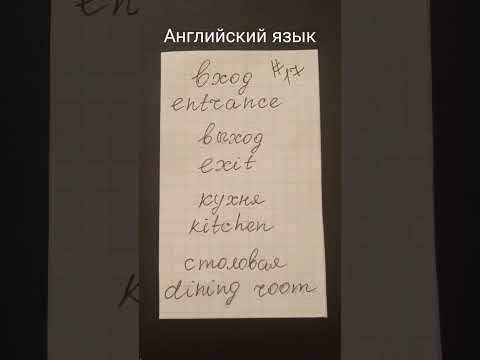 Английский язык
вход #17
entrance
выход
exit
кухня
kitchen
столовая
dining room